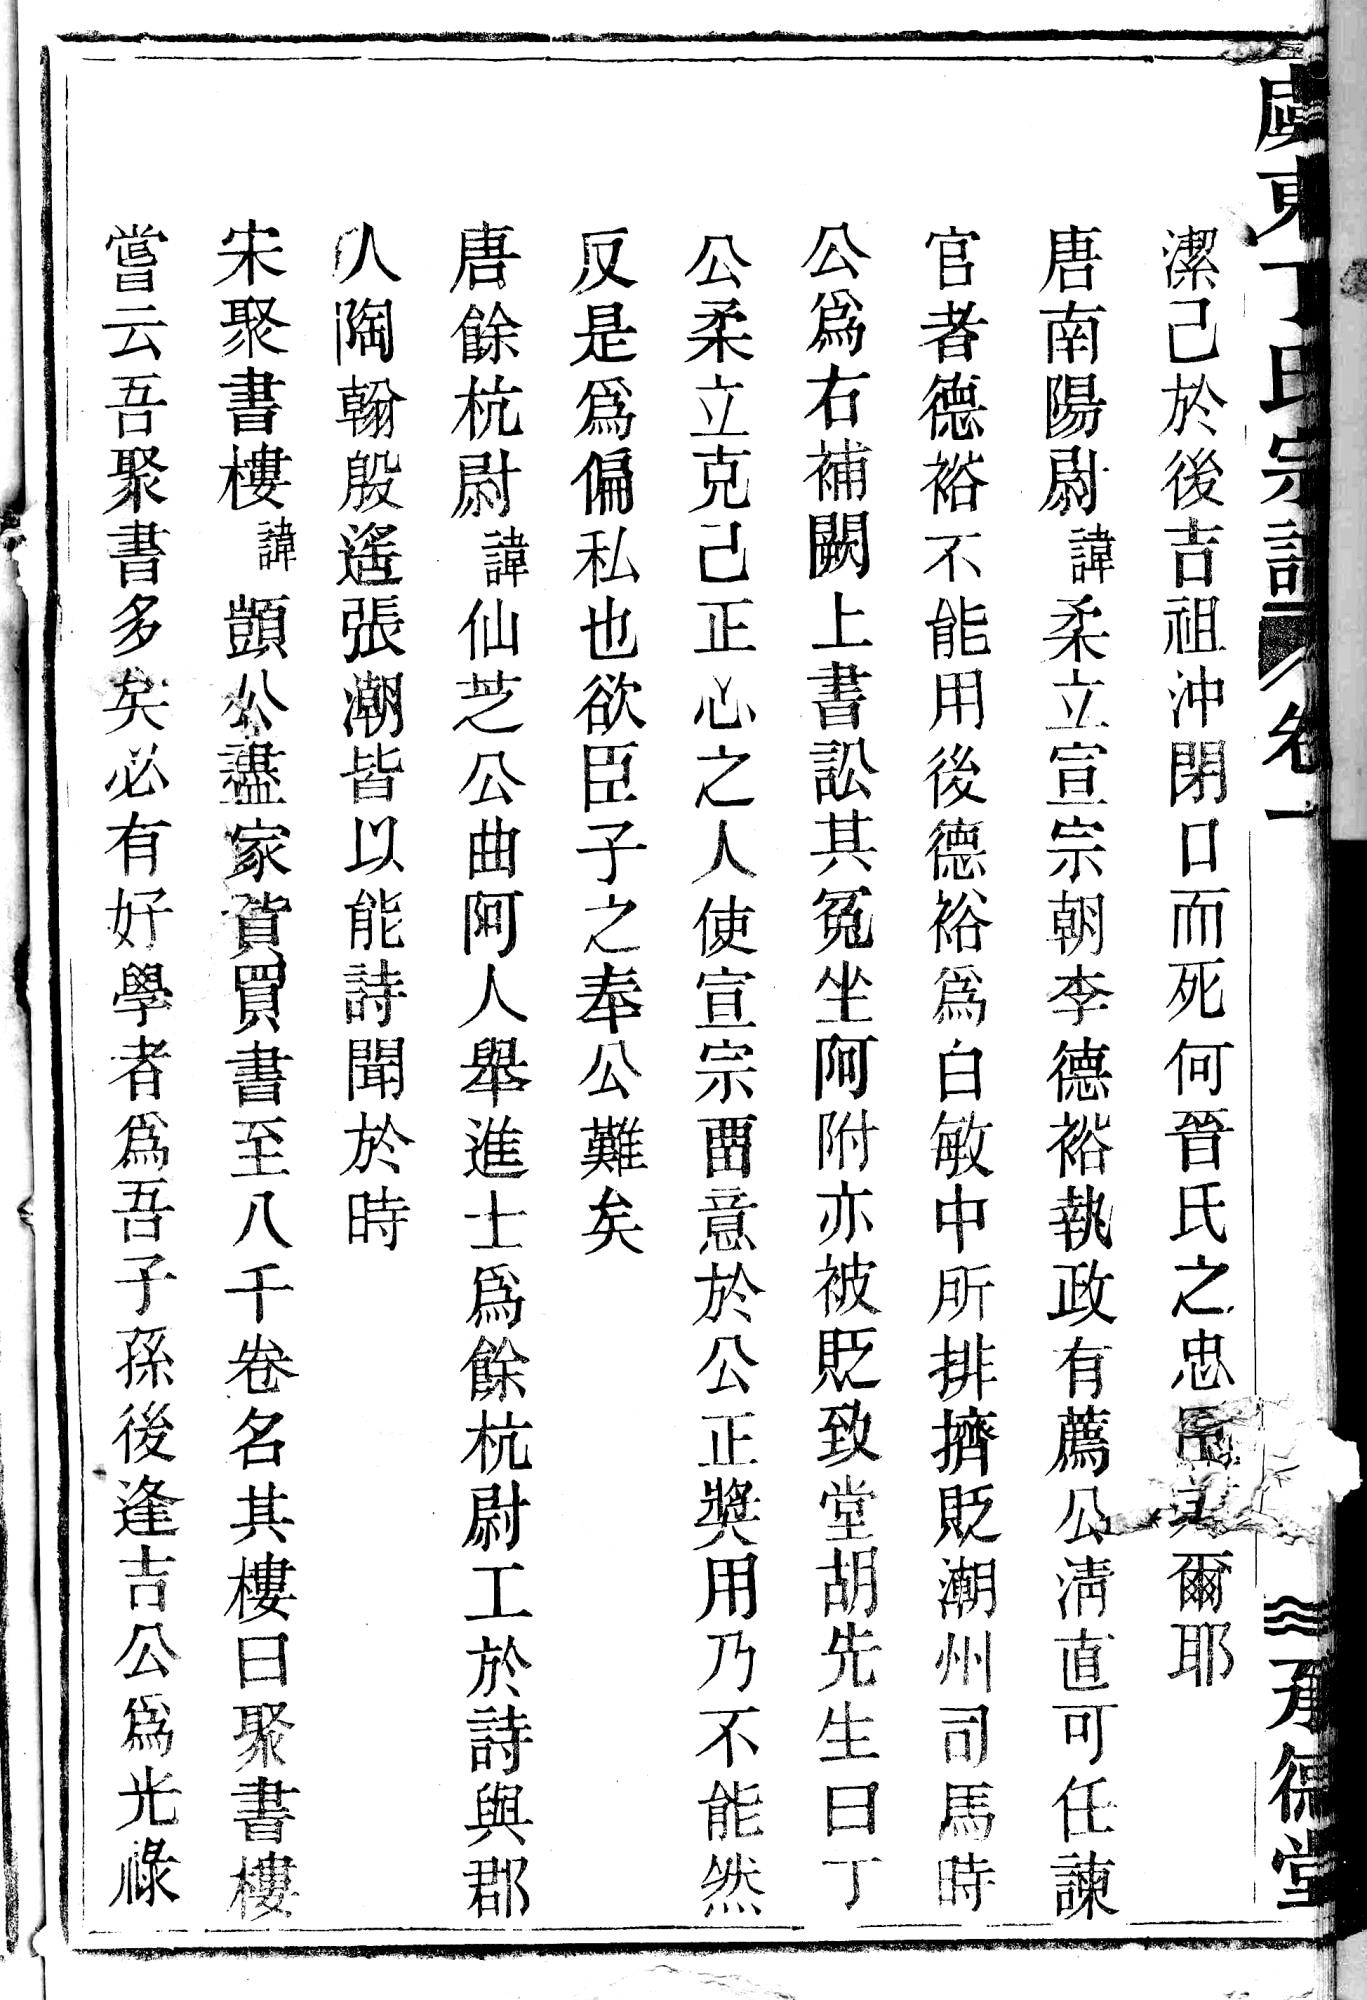 東丁氏宗譜 卷一 承德堂
潔己於後吉祖沖閉口而死何晉氏之忠臣爾耶
唐南陽尉諱柔立宣宗朝李德裕執政有薦公淸直可任諫
官者德裕不能用後德裕爲白敏中所排擠貶潮州司馬時
公爲右補闕上書訟其冤坐阿附亦被貶致堂胡先生曰丁
公柔立克己正心之人使宣宗畱意於公正奬用乃不能然
反是爲偏私也欲臣子之奉公難矣
唐餘杭尉諱仙芝公曲阿人舉進士爲餘杭尉工於詩與郡
人陶翰殷遙張潮皆以能詩聞於時
宋聚書樓諱顗公盡家貲買書至八千卷名其樓曰聚書樓
嘗云吾聚書多矣必有好學者爲吾子孫後逢吉公爲光祿